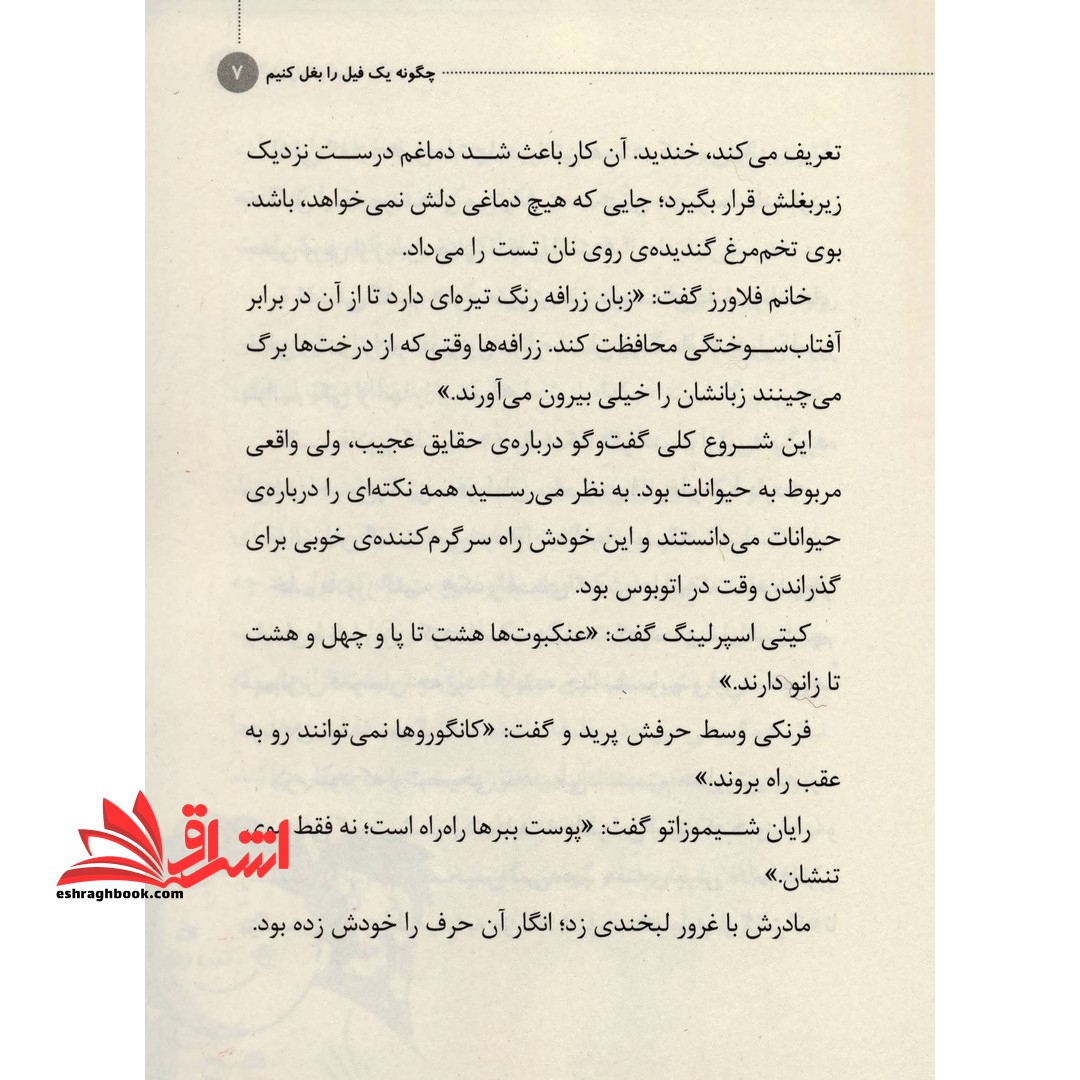 چگونه یک فیل را بغل کنیم ۷
تعریف می‌کند، خندید. آن کار باعث شد دماغم درست نزدیک
زیربغلش قرار بگیرد؛ جایی که هیچ دماغی دلش نمی‌خواهد، باشد.
بوی تخم‌مرغ گندیده‌ی روی نان تست را می‌داد.
خانم فلاورز گفت: «زبان زرافه رنگ تیره‌ای دارد تا از آن در برابر
آفتاب‌سوختگی محافظت کند. زرافه‌ها وقتی‌که از درخت‌ها برگ
می‌چینند زبانشان را خیلی بیرون می‌آورند.»
این شروع کلی گفت‌وگو درباره‌ی حقایق عجیب، ولی واقعی
مربوط به حیوانات بود. به نظر می‌رسید همه نکته‌ای را درباره‌ی
حیوانات می‌دانستند و این خودش راه سرگرم‌کننده‌ی خوبی برای
گذراندن وقت در اتوبوس بود.
کیتی اسپرلینگ گفت: «عنکبوت‌ها هشت تا پا و چهل و هشت
تا زانو دارند.»
فرنکی وسط حرفش پرید و گفت: «کانگوروها نمی‌توانند رو به
عقب راه بروند.»
رایان شیموزاتو گفت: «پوست ببرها راه‌راه است؛ نه فقط موی
تنشان.»
مادرش با غرور لبخندی زد؛ انگار آن حرف را خودش زده بود.
اشراق
eshraghbook.com